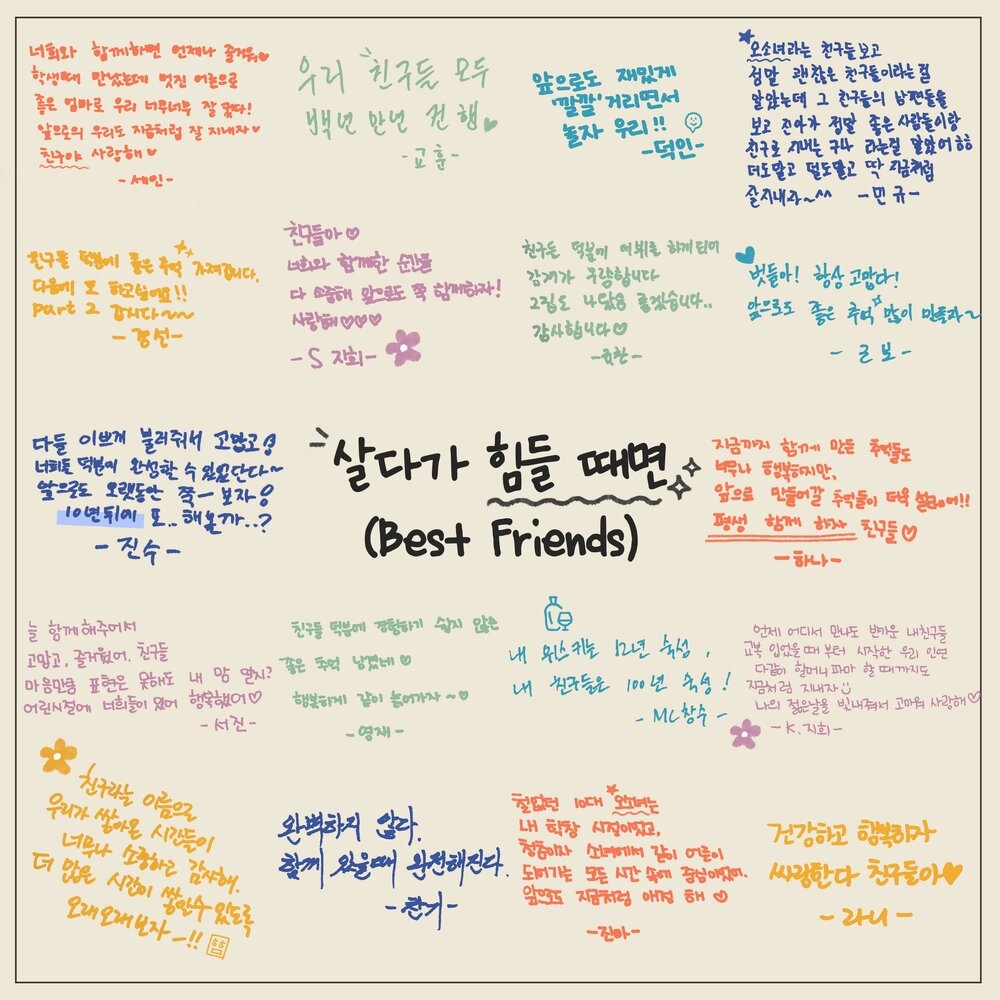 너희와 함께하면 언제나 즐거워♡
학생때 만났는데 멋진 어른으로
좋은 엄마로 우리 너무너무 잘 컸다!
앞으로의 우리도 지금처럼 잘 지내자♡
친구야 사랑해♡
-세인-
우리 친구들 모두
백년 만년 건행♥
-교훈-
앞으로도 재밌게
'깔깔' 거리면서
놀자 우리!!
-덕인-
오소녀라는 친구들보고
정말 괜찮은 친구들이라는걸
알았는데 그 친구들의 남편들을
보고 진아가 정말 좋은 사람들이랑
친구로 지내는 구나 라는걸 알았어ㅎㅎ
더도말고 덜도말고 딱 지금처럼
잘지내자~^^ -민규-
친구들 덕분에 좋은 추억 가져갑니다.
다음에 또 하고싶어요!!
part 2 갑니다~~
-경선-
친구들아♡
너희와 함께한 순간들
다 소중해 앞으로도 쭉 함께하자!
사랑해♡♡♡
-S 지희-
친구들 덕분에 데뷔를 하게되어
감개가 무량합니다
2집도 나왔음 좋겠습니다..
감사합니다♡
벗들아! 항상 고맙다!
앞으로도 좋은 추억 많이 만들자~
-근보-
다들 이쁘게 불러줘서 고맙고!
너희들 덕분에 완성할 수 있었단다~
앞으로도 오랫동안 쭉- 보자!
10년뒤에 또.. 해볼까..?
-진수-
살다가 힘들 때면
(Best Friends)
지금까지 함께 만든 추억들도
너무나 행복하지만,
앞으로 만들어갈 추억들이 더욱 설레어!!
평생 함께 하자 친구들♡
-하나-
늘 함께해주어서
고맙고, 즐거웠어, 친구들
마음만큼 표현은 못해도 내 맘 알지?
어린시절에 너희들이 있어 행복했어♡
-서진-
친구들 덕분에 경험하기 쉽지 않은
좋은 추억 남겼네♡
행복하게 같이 늙어가자~♡
-영재-
내 위스키는 12년 숙성,
내 친구들은 100년 숙성!
-MC창수-
언제 어디서 만나도 반가운 내친구들
교복 입었을 때 부터 시작한 우리 인연
다같이 할머니파마 할 때까지도
지금처럼 지내자
나의 젊은날을 빛내줘서 고마워 사랑해♡
-K.지희-
친구라는 이름으로
우리가 쌓아온 시간들이
너무나 소중하고 감사해.
더 많은 시간이 쌓일수 있도록
오래오래보자-!!
완벽하지 않다.
함께 있을때 완전해진다.
-찬기-
철없던 10대 오소녀는
내 학창 시절이었고,
청춘이자 소녀에서 같이 어른이
되어가는 모든 시간 속에 중심이었어.
앞으로도 지금처럼 애정 해♡
-진아-
건강하고 행복하자
싸랑한다 친구들아♥
-라니-